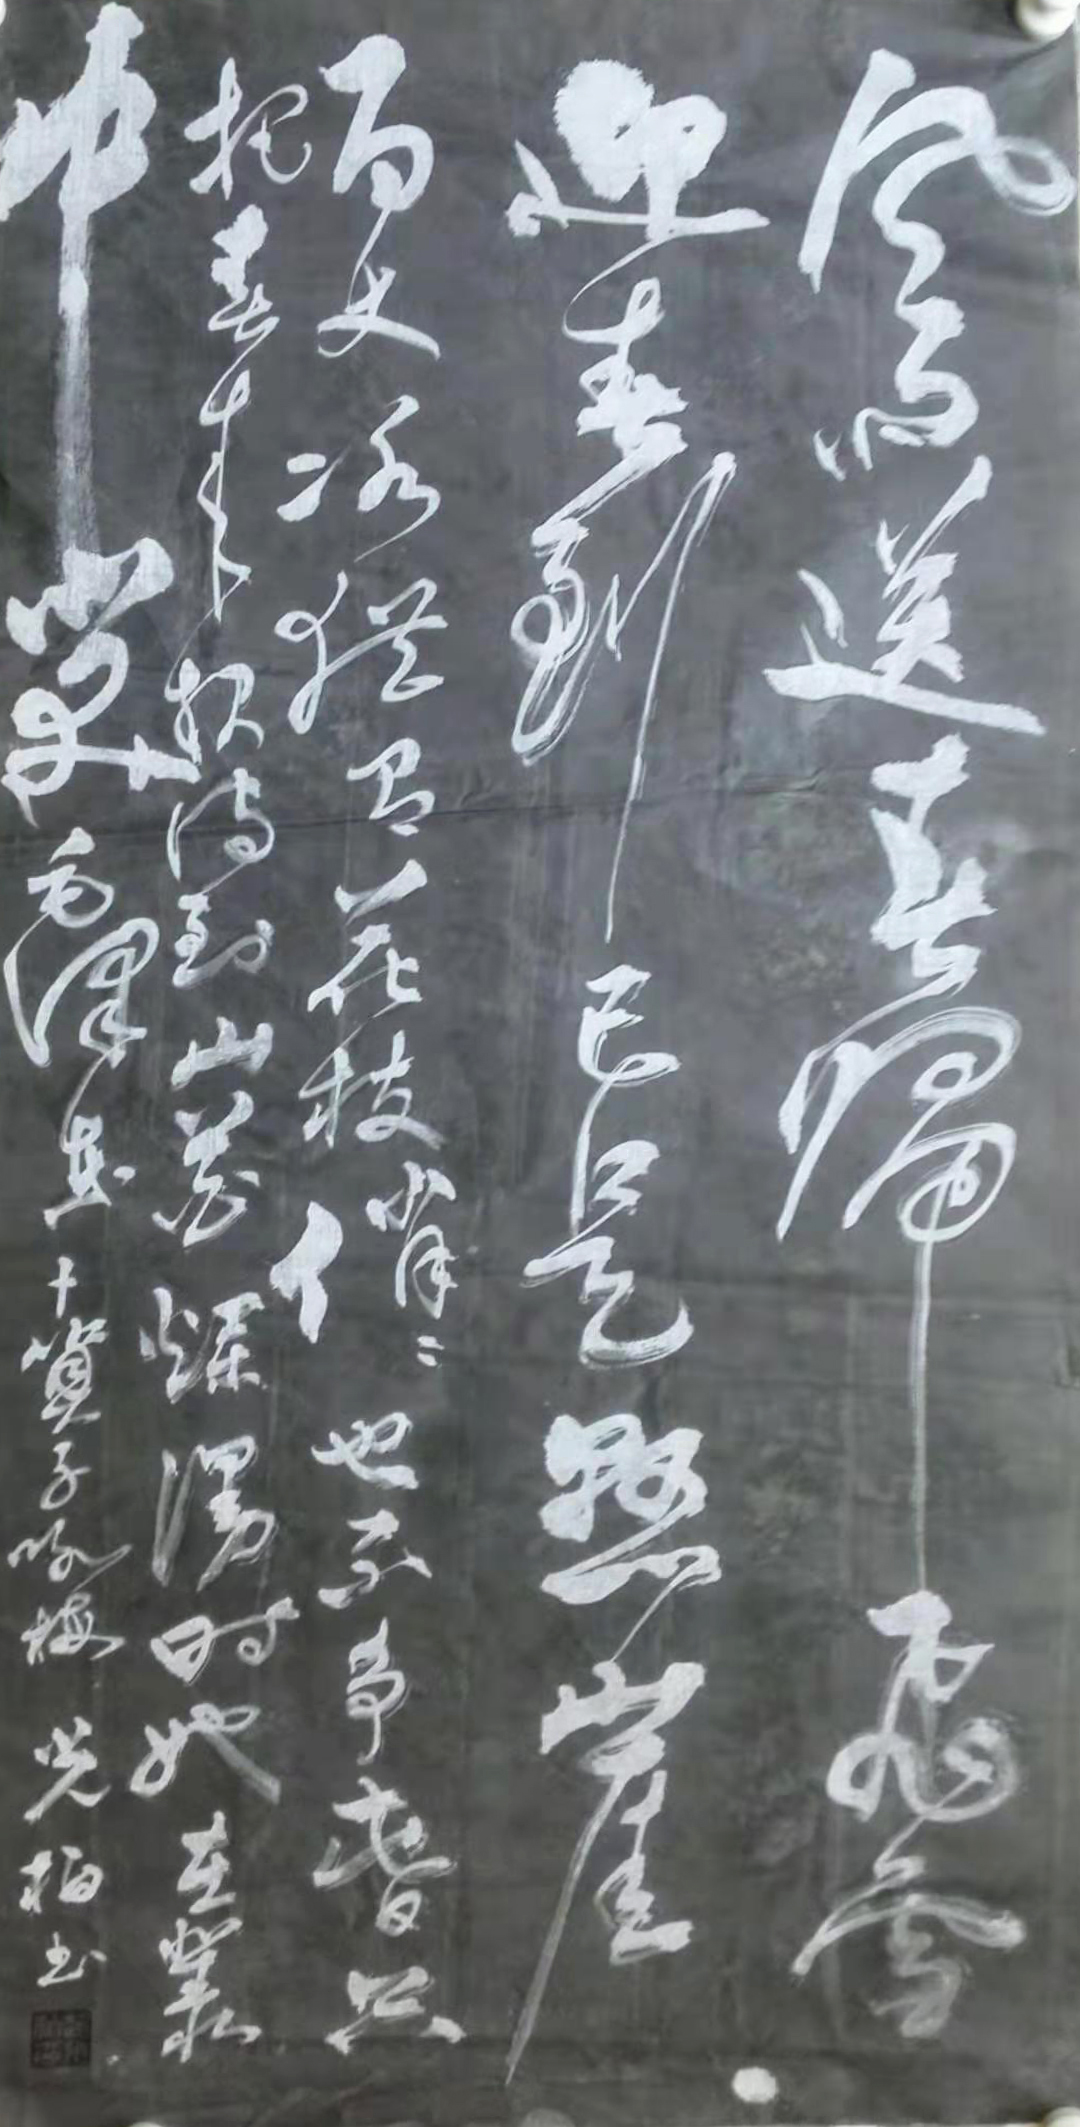 风雨送春歸飛雪
迎春到已是懸崖
百丈冰猶有花枝俏〻也不争春只
把春来报待到山花烂漫时她在叢
中笑 毛泽东卜算子咏梅 光柏书